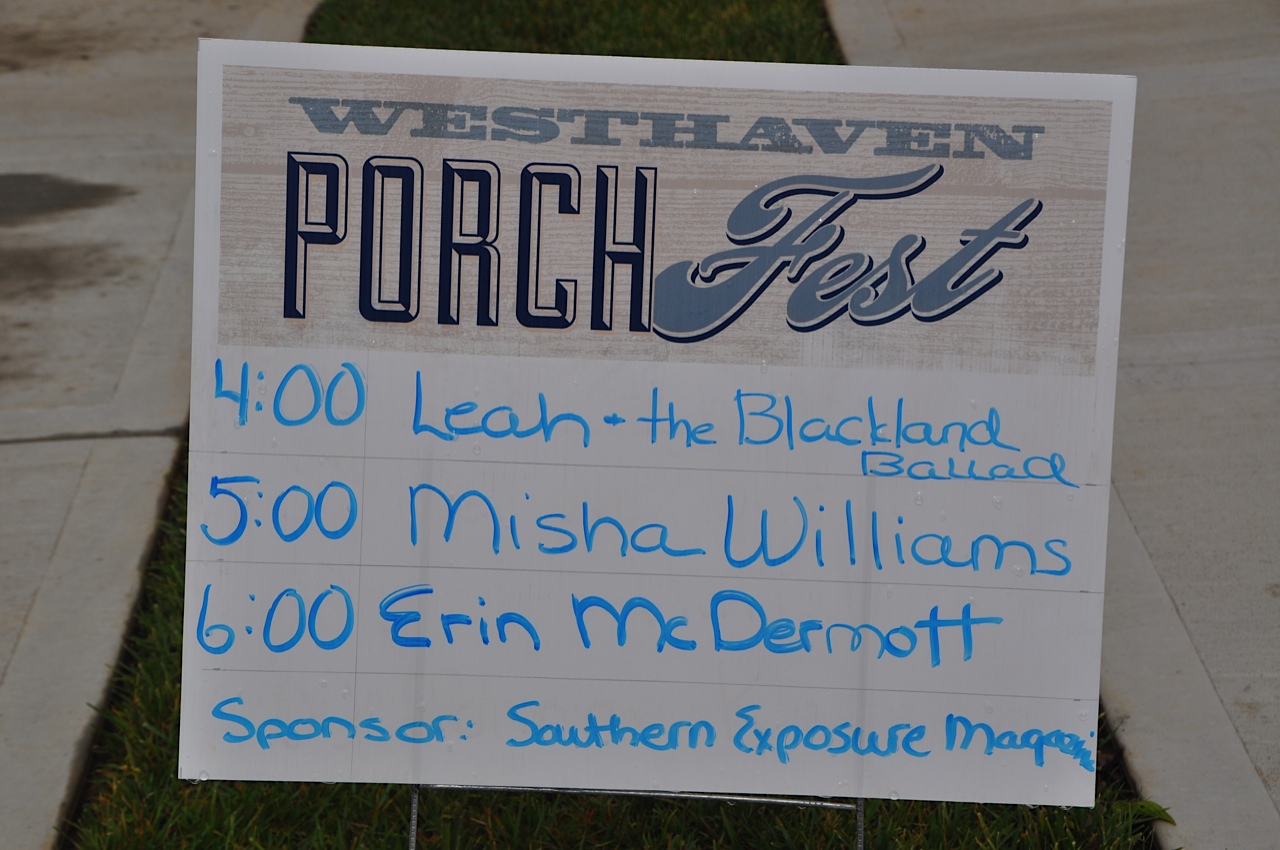 WESTHAVEN
PORCH Fest
4:00 Leah + the Blackland
Ballad
5:00 Misha Williams
6:00 Erin McDermott
Sponsor: Southern Exposure Magazine